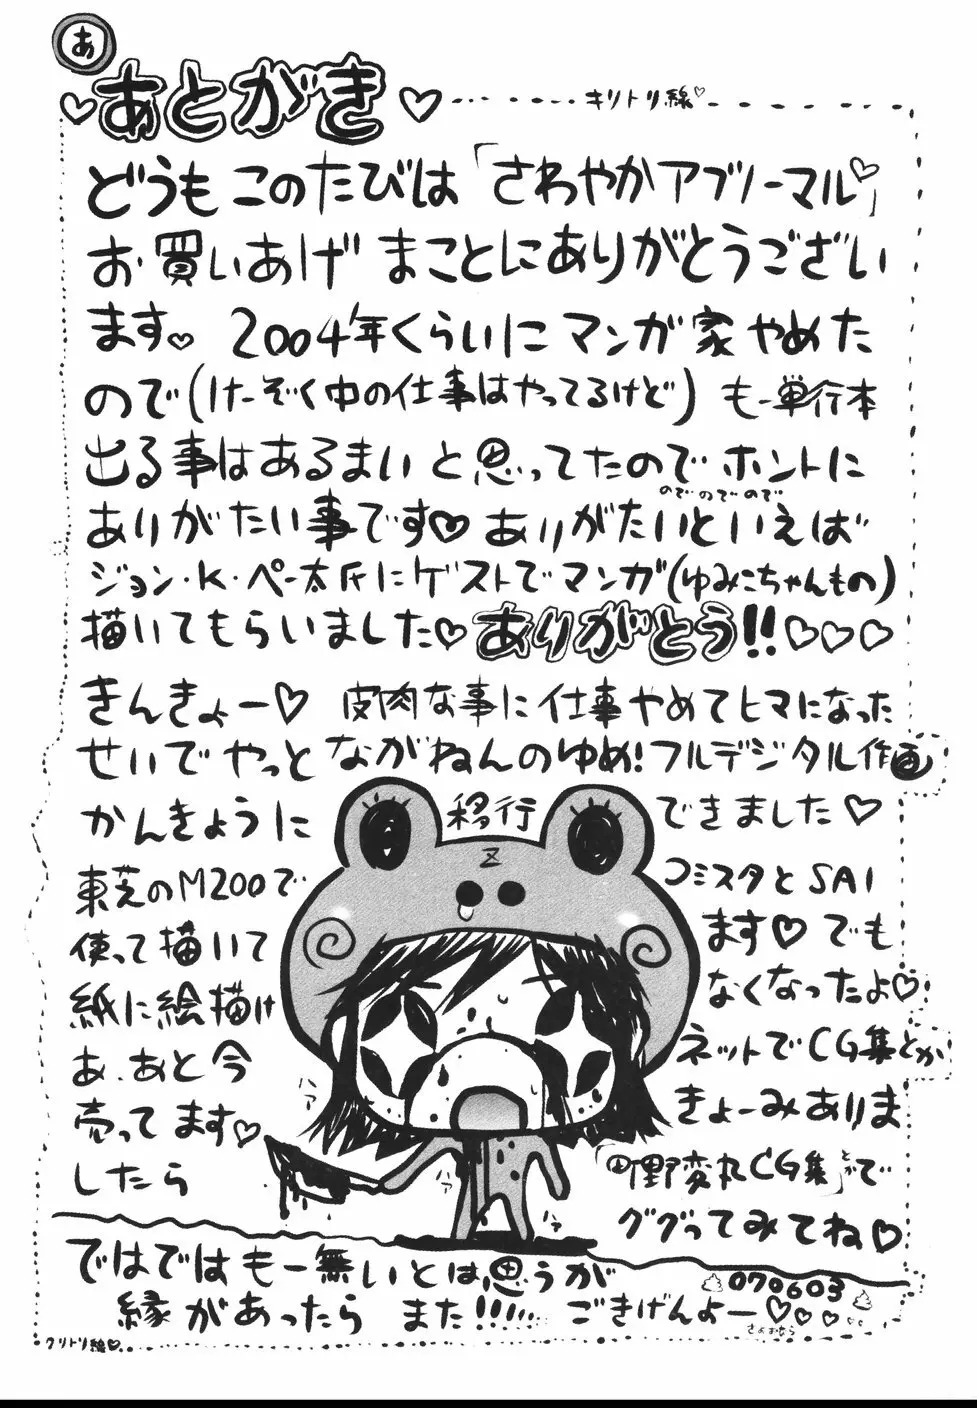 あ
♡あとがき♡
キリトリ線♡
どうもこのたびは「さわやかアブノーマル♡」
お買いあげ まことにありがとうござい
ます♡ 2004年くらいにマンガ家やめた
ので(けーぞく中の仕事はやってるけど) もー単行本
出る事はあるまいと思ってたのでホントに
のでのでので
ありがたい事です♡ ありがたいといえば
ジョン・K・ペー太氏にゲストでマンガ(ゆみこちゃんもの)
描いてもらいました♡ ありがとう!!♡♡♡
きんきょー♡ 皮肉な事に仕事やめてヒマになった
せいでやっとながねんのゆめ!フルデジタル作画
かんきょうに 移行 できました♡
東芝のM200で コミスタとSAI
使って描いて ます♡でも
紙に絵描け なくなったよ♡
あ、あと今 ネットでCG集とか
売ってます♡ きょーみありま
したら 「町野変丸CG集」とかで
ググってみてね♡
ハァ
ハァ
ハァ
ではではもー無いとは思うが
070603
縁があったら また!!!!! ごきげんよー♡♡♡
さよおなら
クリトリ線♡